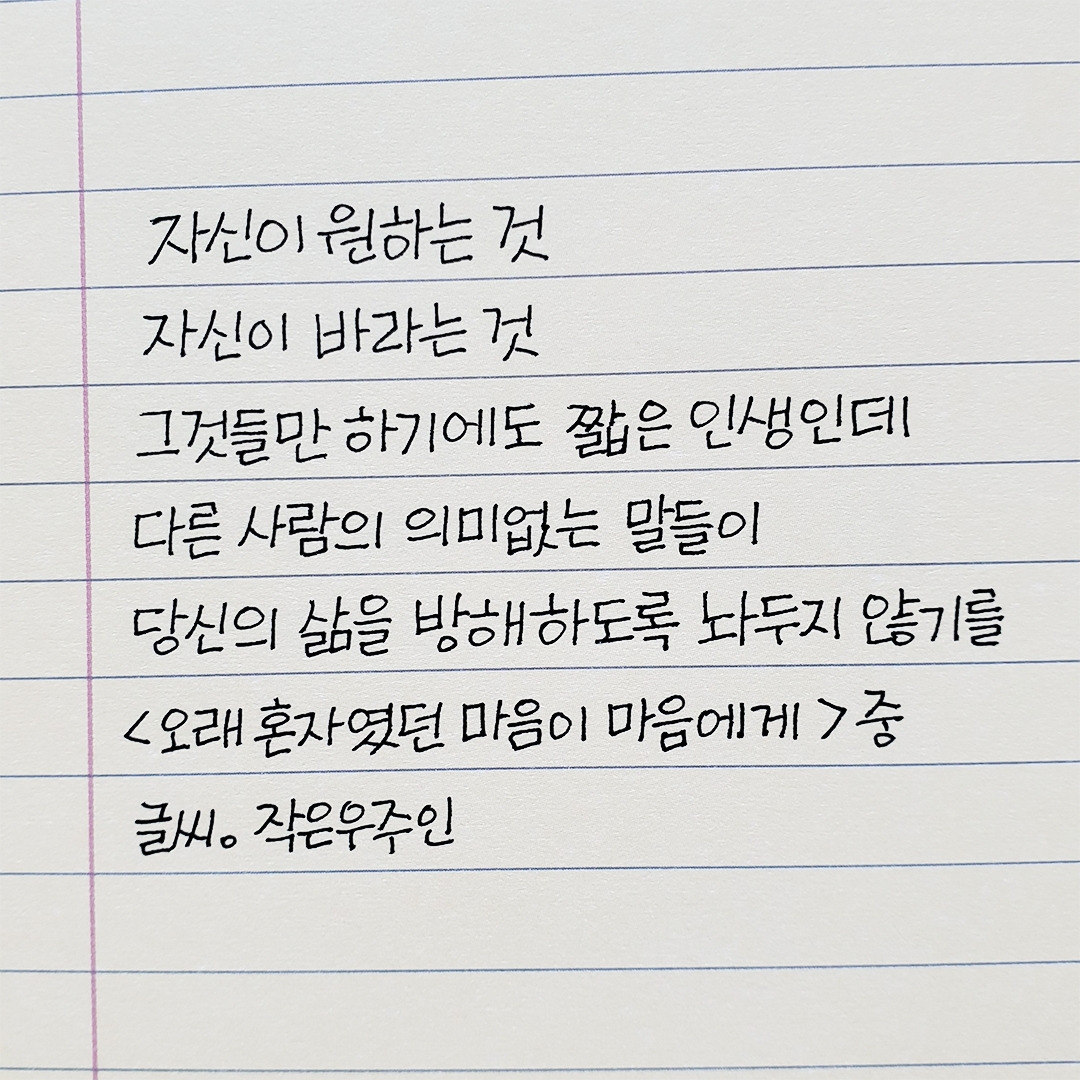 자신이 원하는 것
자신이 바라는 것
그것들만 하기에도 짧은 인생인데
다른 사람의 의미없는 말들이
당신의 삶을 방해하도록 놔두지 않기를
<오래 혼자였던 마음이 마음에게> 중
글씨。작은우주인